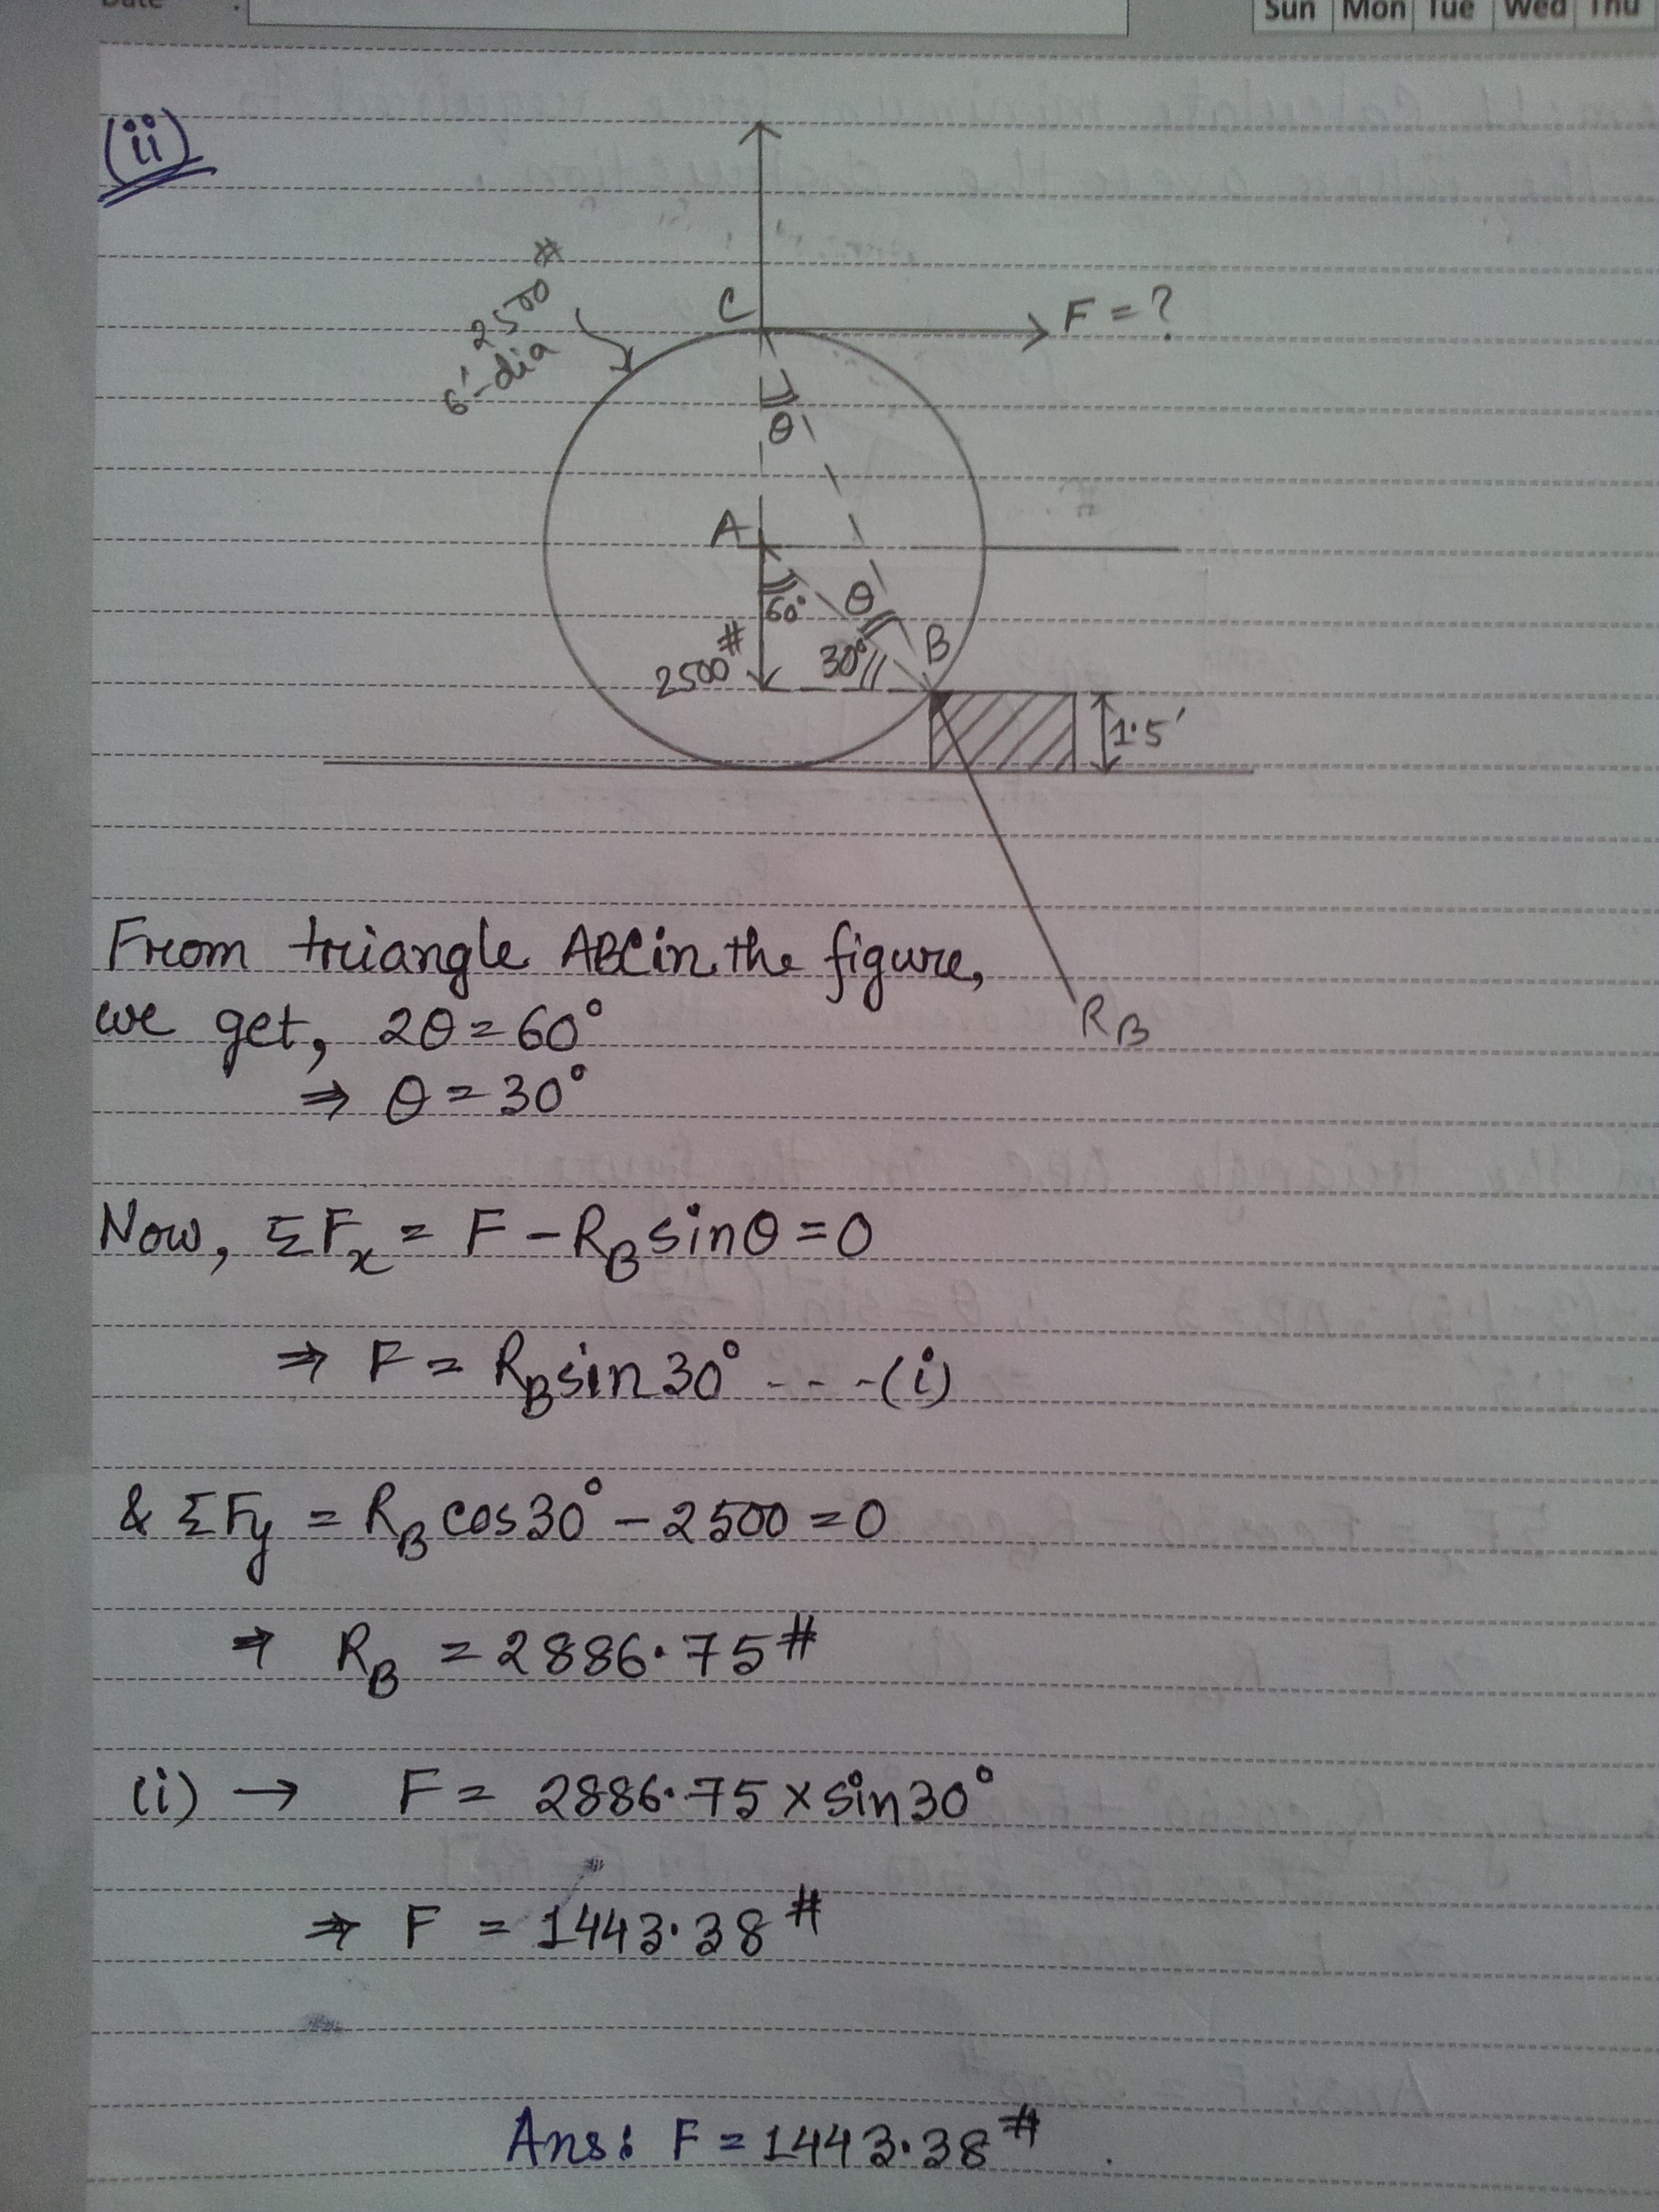 Date :
Sun Mon Tue Wed Thu
(ii)
2500#
6'-dia
C
F = ?
θ
A
60°
θ
30°
B
2500#
1.5'
R_B
From triangle ABC in the figure,
we get, 2θ = 60°
⇒ θ = 30°
Now, ΣF_x = F - R_B sinθ = 0
⇒ F = R_B sin30° - - - (i)
& ΣF_y = R_B cos30° - 2500 = 0
⇒ R_B = 2886.75#
(i) → F = 2886.75 × sin30°
⇒ F = 1443.38#
Ans: F = 1443.38#.